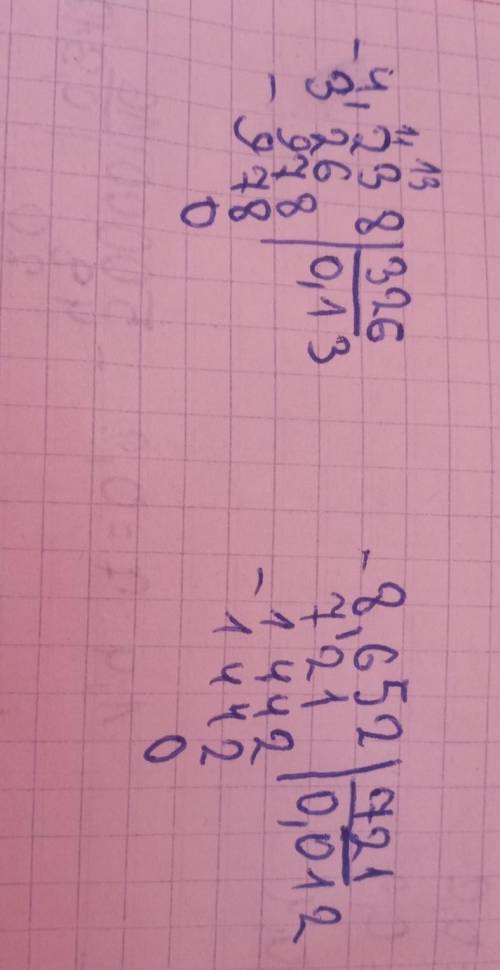 11 13
- 4,238 | 326
3 26 | 0,13
- 978
978
0
- 8,652 | 721
7 21 | 0,012
- 1442
1442
0